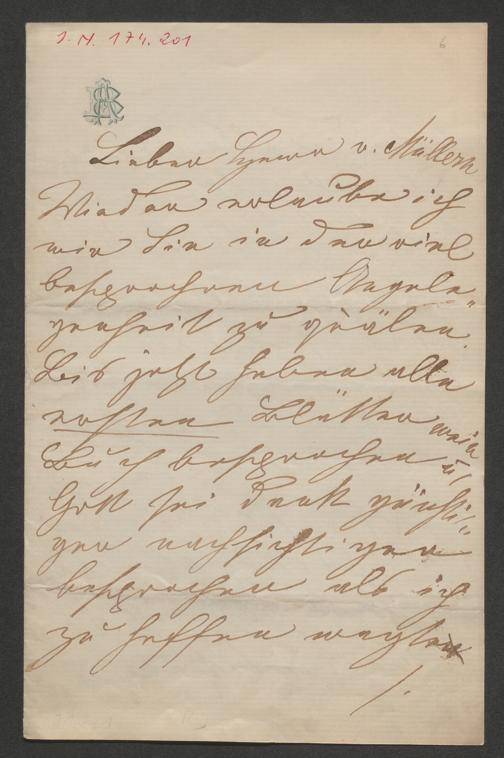 J. N. 174.201
6
Lieber Herr v. Müllern
Wieder erlaube ich
mir Sie in der viel
besprochenen Angele-
genheit zu quälen.
Bis jetzt haben alle
ersten Blätter mein
Buch besprochen u.
Gott sei Dank günsti-
ger nachsichtiger
besprochen als ich
zu hoffen wagte
/.